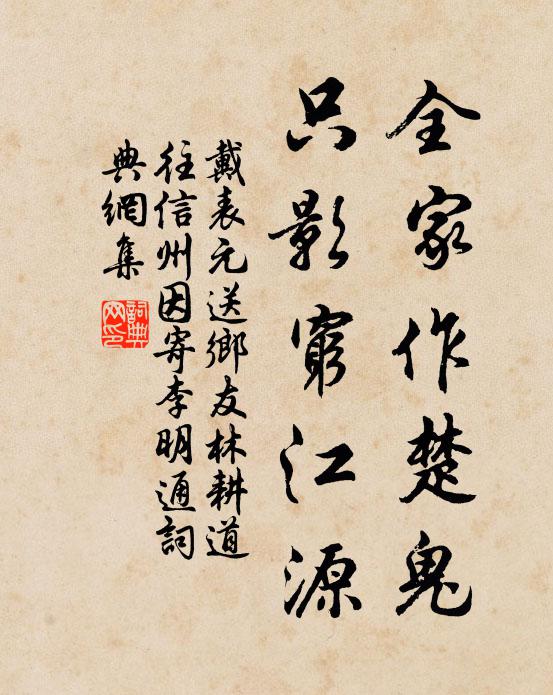 全家作楚鬼
只影窮江源
戴表元送鄉友林耕道
往信州因寄李明通詞
典網集
詞典网印